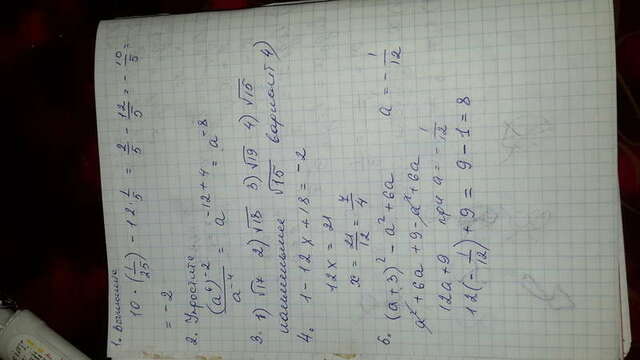 1. Вычислите
10 · (1/25) - 12 · 1/5 = 2/5 - 12/5 = - 10/5 =
= - 2
2. Упростите
(a⁶)⁻²/a⁻⁴ = a⁻¹²⁺⁴ = a⁻⁸
3. 1) √17 2) √18 3) √19 4) √15
наименьшее √15 вариант 4)
4. 1 - 12x + 18 = -2
12x = 21
x = 21/12 = 7/4
6. (a+3)² - a² + 6a a = - 1/12
a² + 6a + 9 - a² + 6a
12a + 9 при a = - 1/12
12(- 1/12) + 9 = 9 - 1 = 8